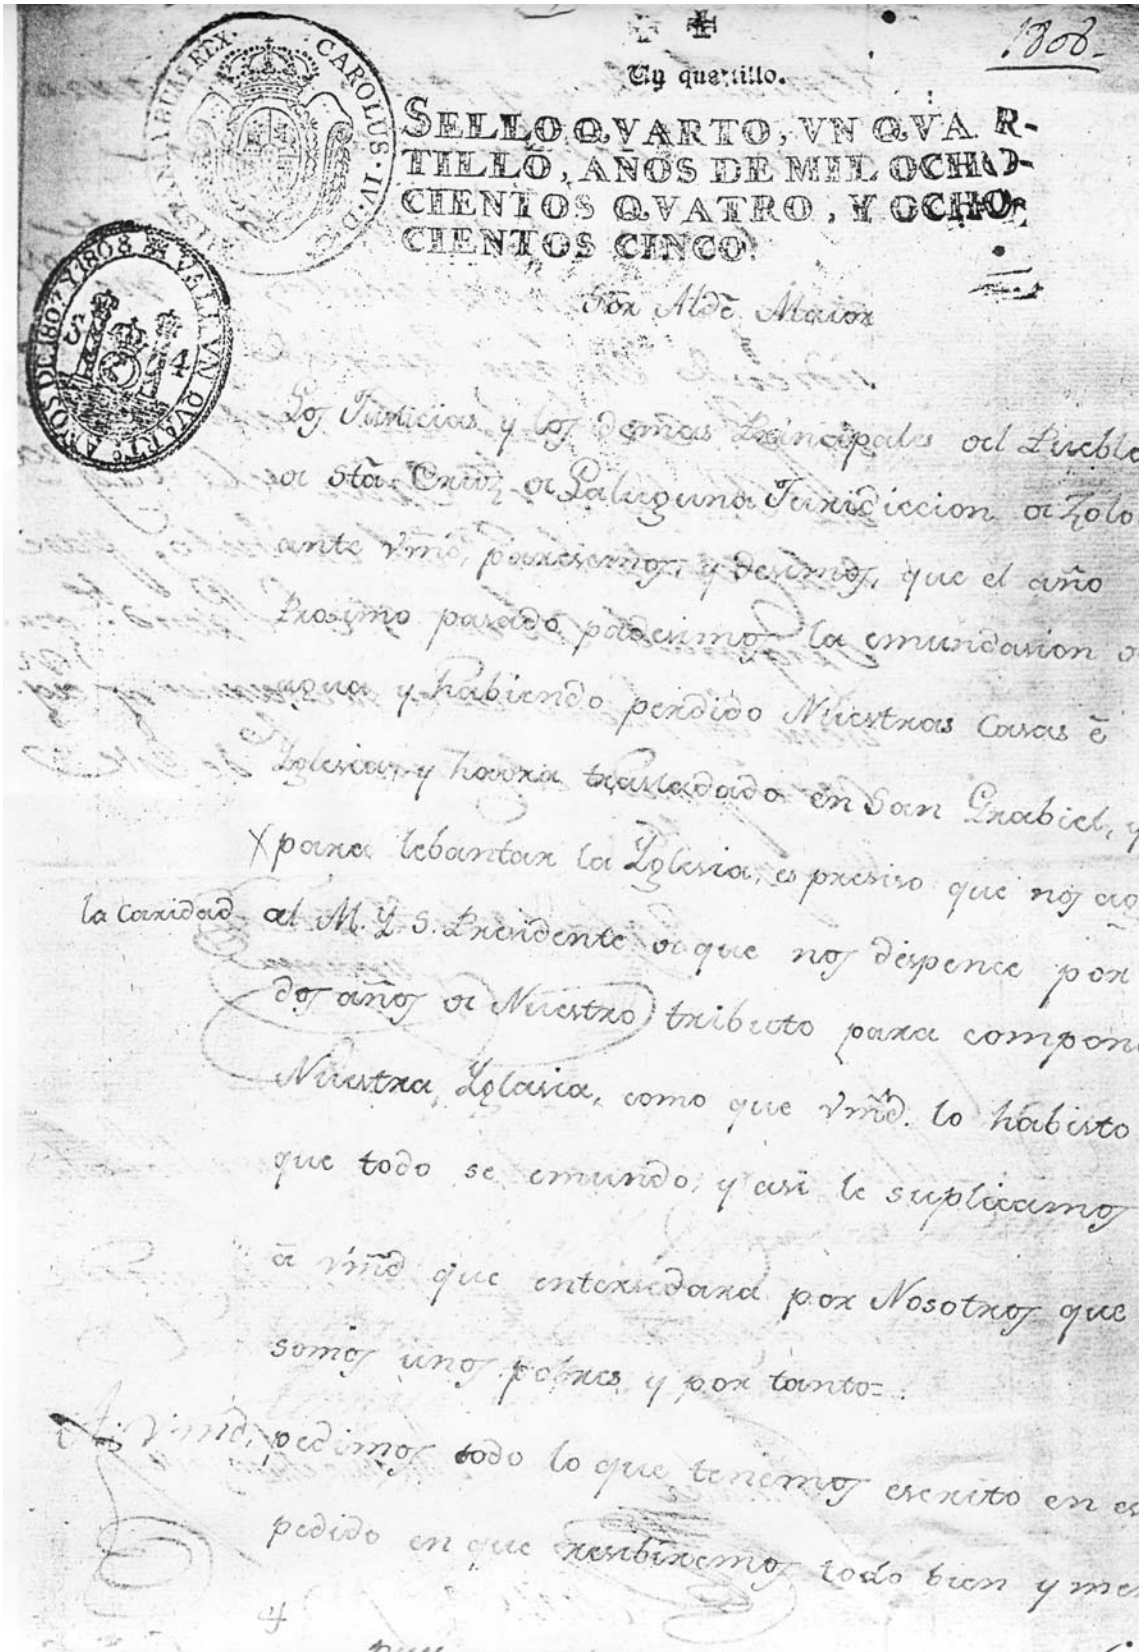 1808.
Un quartillo.
SELLO QVARTO, VN QVAR-
TILLO, AÑOS DE MIL OCHO-
CIENTOS QVATRO, Y OCHO-
CIENTOS CINCO.
CAROLUS·IV·D·G· HISPANIARUM REX.
VALE UN QUARTo. AÑOS DE 1807 Y 1808
S 4
Sor Alde Maior
Los Justicias y los demas Principales del Pueble
de Sta. Cruz de Laluguna Juridiccion de Zolo
ante Vmd, paresemos, y desimos, que el año
Prosimo pasado padesimos la emundasion de
agua y habiendo perdido Nuestras Casas ē
Yglesia, y haora trasladado en San Grabiel, y
para lebantar la Yglesia, es presiso que nos ag
la caridad al M. Y. S. Presidente de que nos dispence por
dos años de Nuestro tributo para compone
Nuestra Yglasia, como que Vmd. lo habisto
que todo se emundo, y asi le suplicamos
ā Vmd que entersedara por Nosotros que
somos unos pobres y por tanto=
A. Vmd, pedimos todo lo que tenemos escrito en es
pedido en que resibiremos todo bien y mer